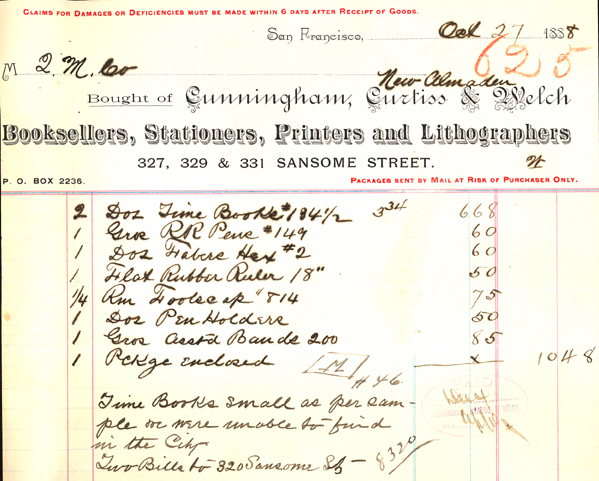 CLAIMS FOR DAMAGES OR DEFICIENCIES MUST BE MADE WITHIN 6 DAYS AFTER RECEIPT OF GOODS.
San Francisco, Oct 27 1888
625
M Q. M. Co
New Almaden
Bought of Cunningham, Curtiss & Welch
Booksellers, Stationers, Printers and Lithographers
327, 329 & 331 SANSOME STREET.
P. O. BOX 2236.
PACKAGES SENT BY MAIL AT RISK OF PURCHASER ONLY.
2 Dos Time Books #134 1/2 3 34 668
1 Gros RR Pens #149 60
1 Dos Fabers Hex #2 60
1 Flat Rubber Ruler 18" 50
1/4 Rm Foolscap #814 75
1 Dos Pen Holders 50
1 Gros Asstd Bands 200 85
1 Pckge enclosed M x 1048
#46
Time Books small as per sam-
ple we were unable to find
in the City
Two Bills to 320 Sansome St 8320